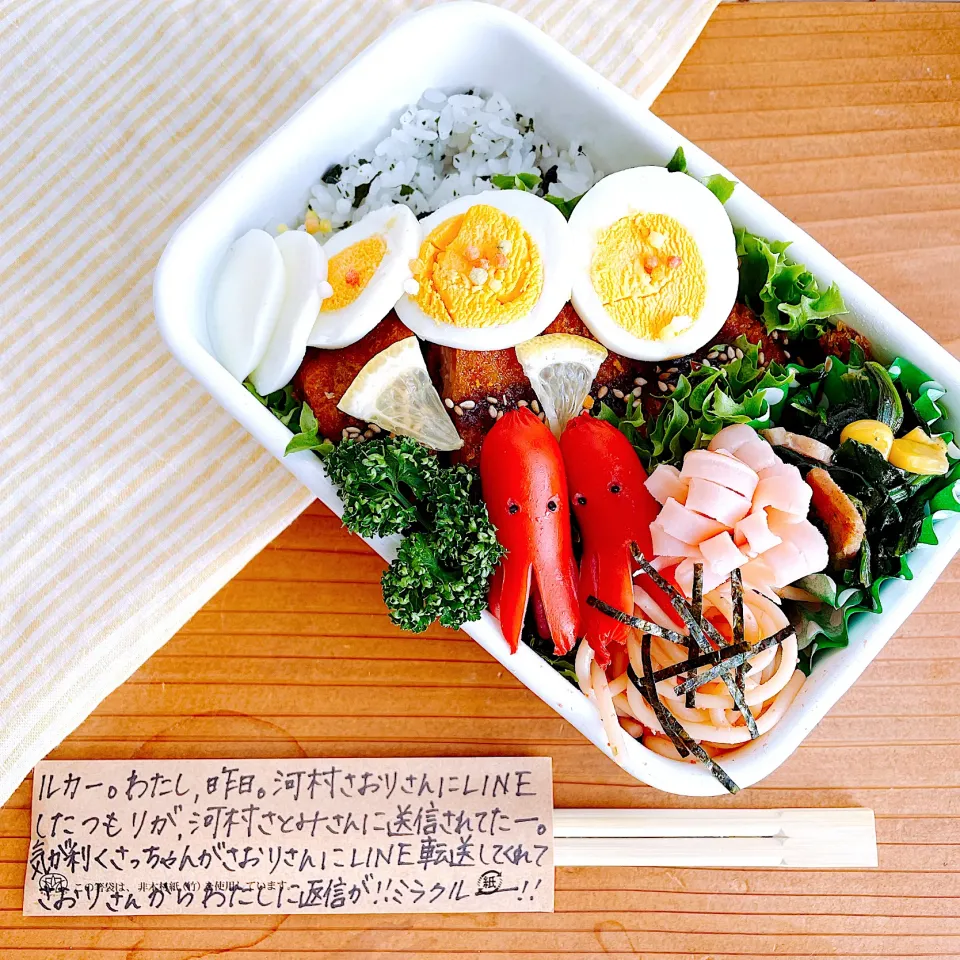 ルカー。わたし,昨日。河村さおりさんにLINE
したつもりが,河村さとみさんに送信されてたー。
気が利くさっちゃんがさおりさんにLINE転送してくれて
この箸袋は、非木材紙(竹)を使用しています。
さおりさんからわたしに返信が!!ミラクルー!!
紙